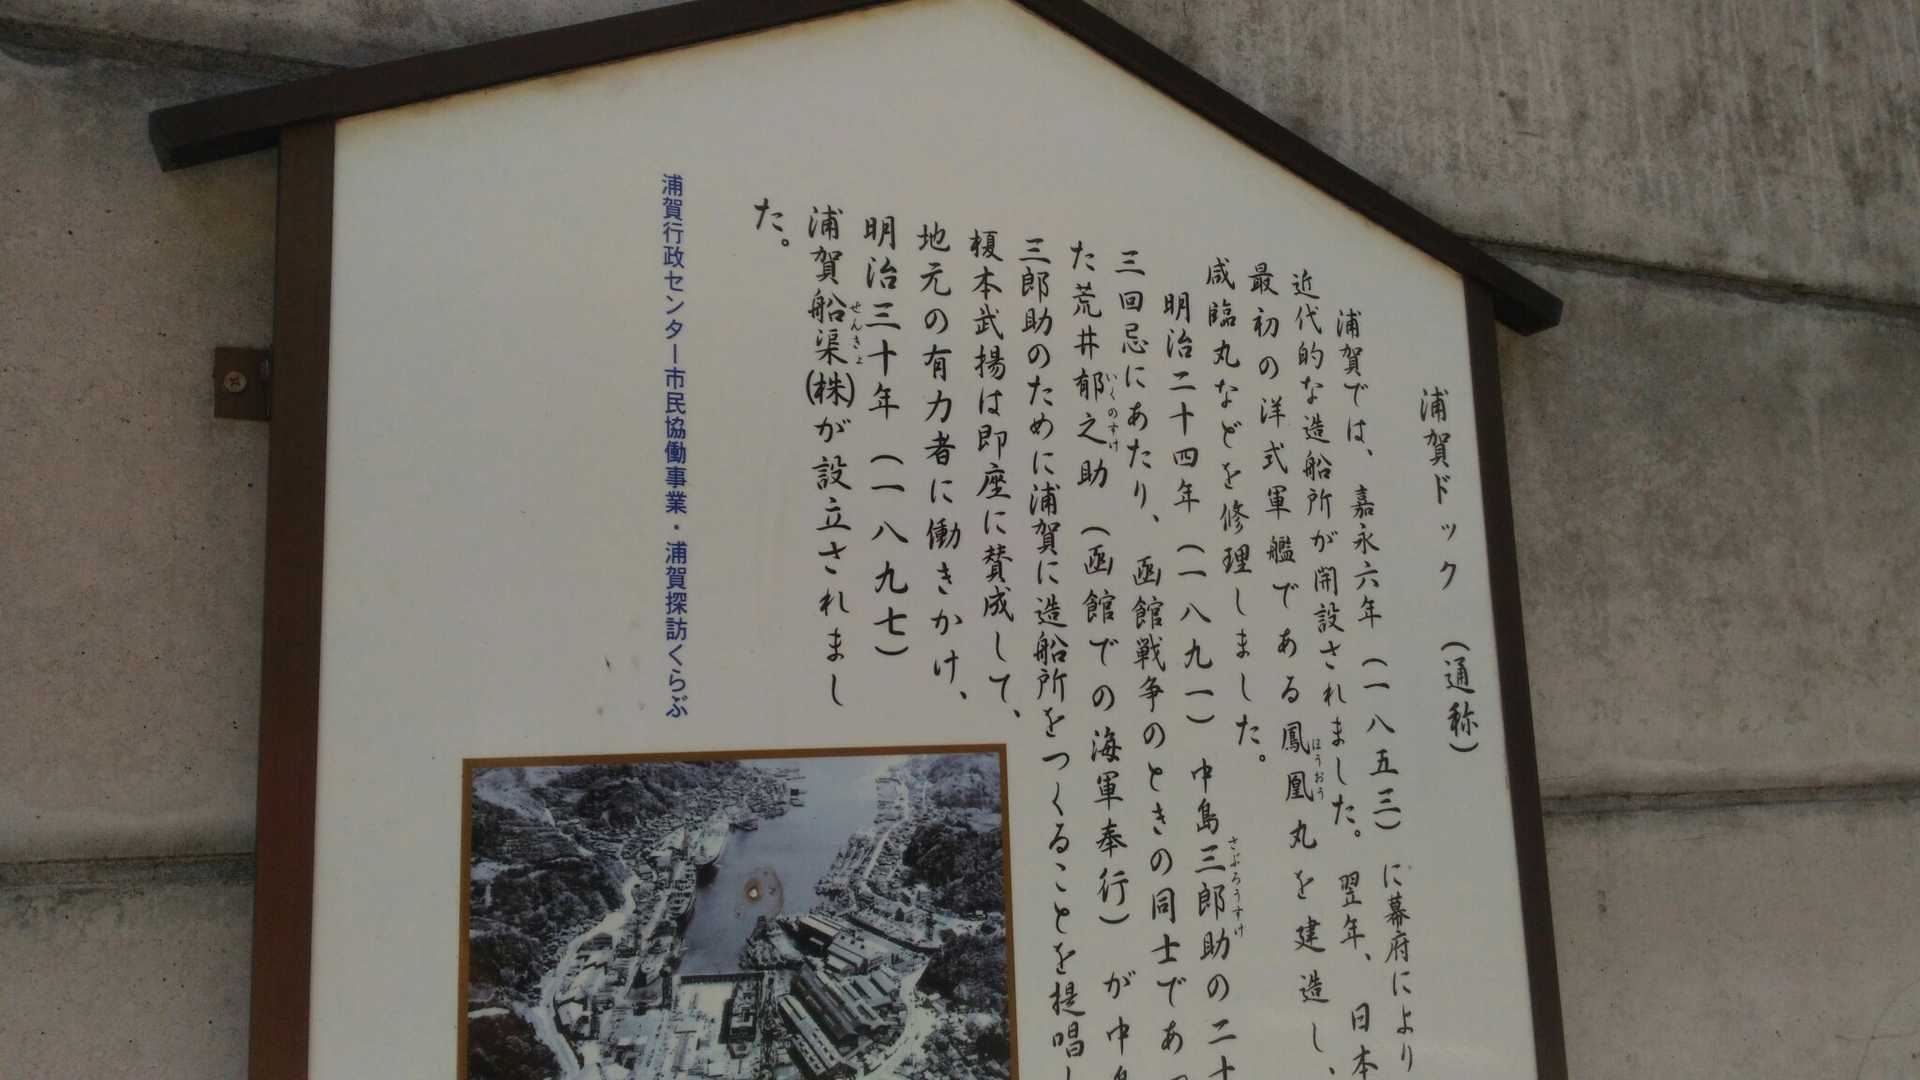 浦賀ドック (通称)
浦賀では、嘉永六年(一八五三)に幕府により
近代的な造船所が開設されました。翌年、日本
最初の洋式軍艦である鳳凰丸を建造し、
ほうおう
咸臨丸などを修理しました。
明治二十四年(一八九一)中島三郎助の二十
さぶろうすけ
三回忌にあたり、函館戦争のときの同士であ
た荒井郁之助(函館での海軍奉行)が中
いくのすけ
三郎助のために浦賀に造船所をつくることを提唱し
榎本武揚は即座に賛成して、
地元の有力者に働きかけ、
明治三十年(一八九七)
浦賀船渠(株)が設立されまし
せんきょ
た。
浦賀行政センター市民協働事業・浦賀探訪くらぶ